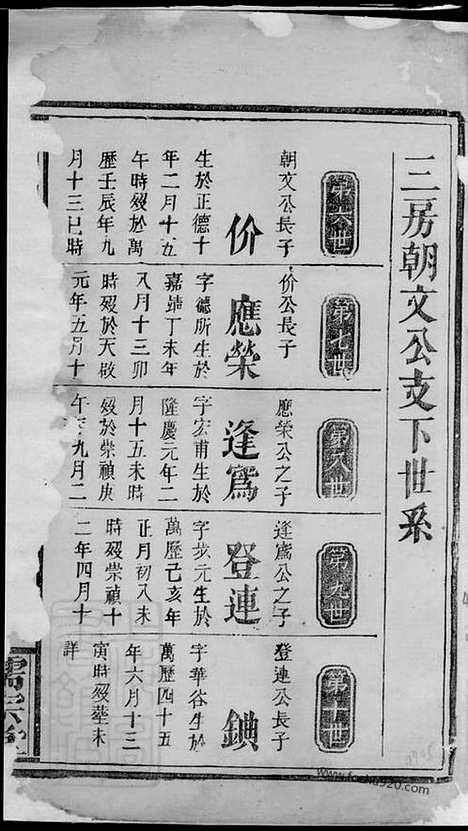 三房朝文公支下世系
第六世
朝文公長子
价
生於正德十
年二月十五
午時歿於萬
歷壬辰年九
月十三巳時
第七世
价公長子
應榮
字德所生於
嘉靖丁未年
八月十三卯
時歿於天啟
元年五月十
第八世
應榮公之子
逢爲
字宏甫生於
隆慶元年二
月十五未時
歿於崇禎庚
午年九月二
第九世
逢爲公之子
登連
字步元生於
萬歷己亥年
正月初八未
時歿崇禎十
二年四月十
第十世
登連公長子
鎖
字華谷生於
萬歷四十五
年六月十三
寅時歿塟未
詳